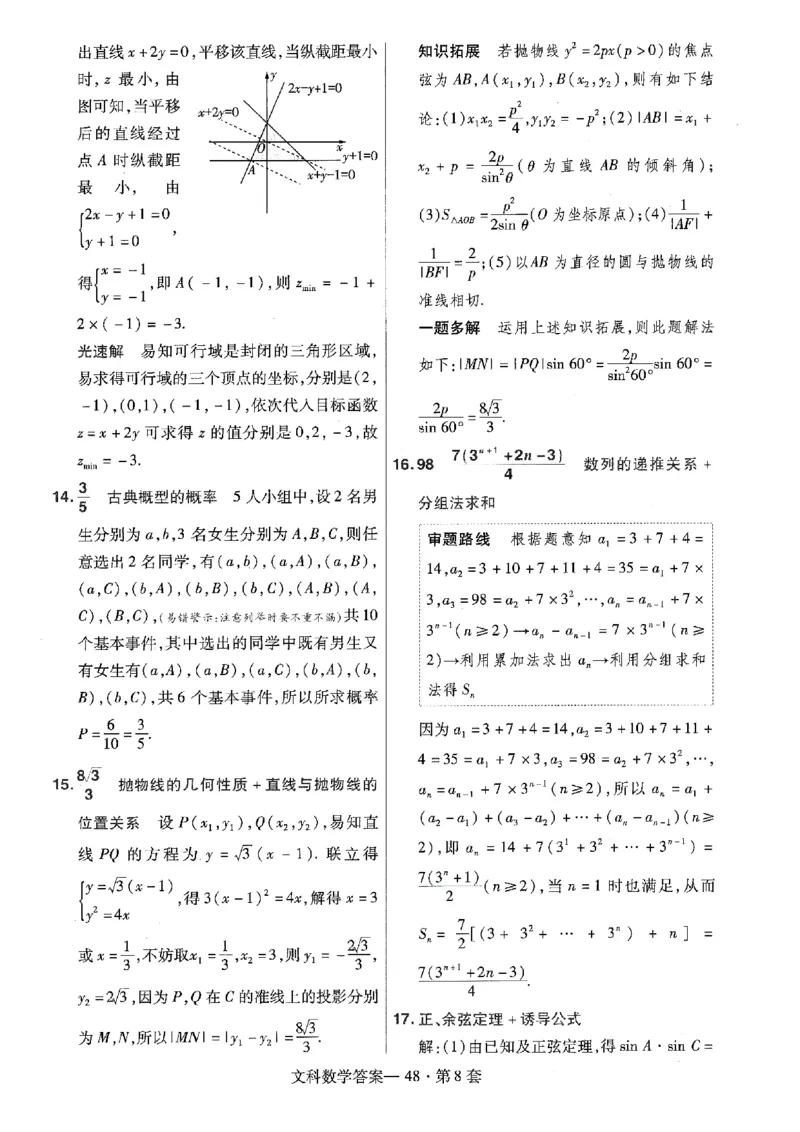 出直线x+2y=0,平移该直线,当纵截距最小
时, z 最小, 由
图可知,当平移
后的直线经过
点 A 时纵截距
最 小, 由
y
2x-y+1=0
x+2y=0
O
x
y+1=0
A
x+y-1=0
{2x-y+1=0
y+1=0 ,
得{x=-1
y=-1 ,即A(-1,-1),则 z_min = -1+
2×(-1)=-3.
光速解 易知可行域是封闭的三角形区域,
易求得可行域的三个顶点的坐标,分别是(2,
-1),(0,1),(-1,-1),依次代入目标函数
z=x+2y可求得z的值分别是0,2,-3,故
z_min=-3.
14. 3/5 古典概型的概率 5人小组中,设2名男
生分别为a,b,3名女生分别为A,B,C,则任
意选出2名同学,有(a,b),(a,A),(a,B),
(a,C),(b,A),(b,B),(b,C),(A,B),(A,
C),(B,C),(易错警示:注意列举时要不重不漏)共10
个基本事件,其中选出的同学中既有男生又
有女生有(a,A),(a,B),(a,C),(b,A),(b,
B),(b,C),共6个基本事件,所以所求概率
P=6/10=3/5.
15. 8√3/3 抛物线的几何性质+直线与抛物线的
位置关系 设P(x₁,y₁),Q(x₂,y₂),易知直
线 PQ 的方程为 y=√3(x-1). 联立得
{y=√3(x-1)
y²=4x ,得3(x-1)²=4x,解得x=3
或x=1/3,不妨取x₁=1/3,x₂=3,则y₁=-2√3/3,
y₂=2√3,因为P,Q在C的准线上的投影分别
为M,N,所以|MN|=|y₁-y₂|=8√3/3.
知识拓展 若抛物线y²=2px(p>0)的焦点
弦为AB,A(x₁,y₁),B(x₂,y₂),则有如下结
论:(1)x₁x₂=p²/4,y₁y₂=-p²;(2)|AB|=x₁+
x₂+p=2p/sin²θ(θ为直线AB的倾斜角);
(3)S△AOB=p²/2sin θ(O为坐标原点);(4)1/|AF|+
1/|BF|=2/p;(5)以AB为直径的圆与抛物线的
准线相切.
一题多解 运用上述知识拓展,则此题解法
如下:|MN|=|PQ|sin 60°=2p/sin²60°sin 60°=
2p/sin 60°=8√3/3.
16.98 7(3ⁿ⁺¹+2n-3)/4 数列的递推关系+
分组法求和
审题路线 根据题意知a₁=3+7+4=
14,a₂=3+10+7+11+4=35=a₁+7×
3,a₃=98=a₂+7×3²,…,aₙ=aₙ₋₁+7×
3ⁿ⁻¹(n≥2)→aₙ-aₙ₋₁=7×3ⁿ⁻¹(n≥
2)→利用累加法求出aₙ→利用分组求和
法得Sₙ
因为a₁=3+7+4=14,a₂=3+10+7+11+
4=35=a₁+7×3,a₃=98=a₂+7×3²,…,
aₙ=aₙ₋₁+7×3ⁿ⁻¹(n≥2),所以aₙ=a₁+
(a₂-a₁)+(a₃-a₂)+…+(aₙ-aₙ₋₁)(n≥
2),即aₙ=14+7(3¹+3²+…+3ⁿ⁻¹)=
7(3ⁿ+1)/2(n≥2),当n=1时也满足,从而
Sₙ=7/2[(3+3²+…+3ⁿ)+n]=
7(3ⁿ⁺¹+2n-3)/4.
17.正、余弦定理+诱导公式
解:(1)由已知及正弦定理,得sin A·sin C=
文科数学答案—48·第8套